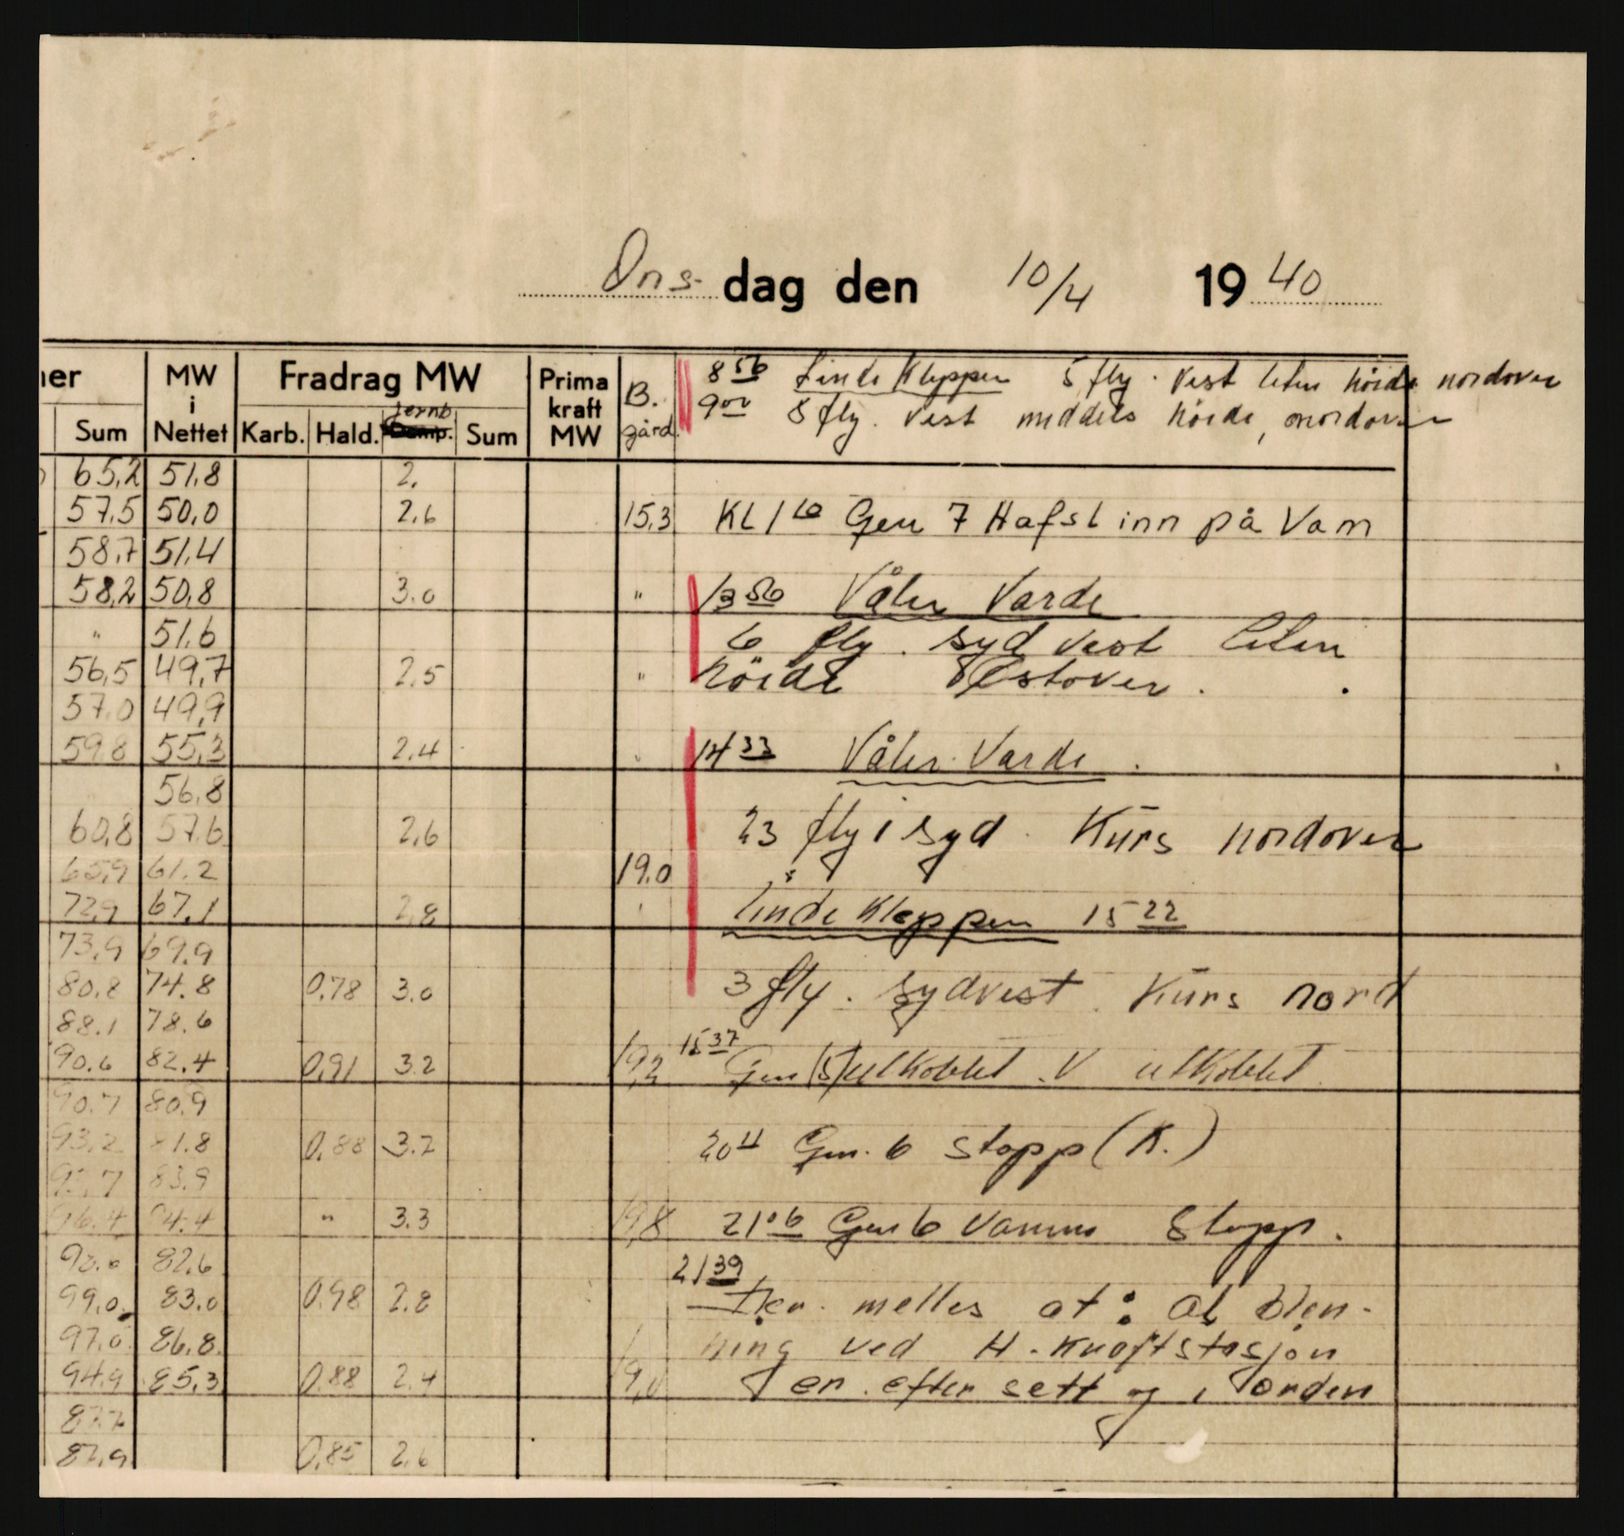 Ons- dag den 10/4 1940
ner MW i Nettet Fradrag MW Prima kraft MW B. gård.
Sum Karb. Hald. Jernb Sum
8 56 Linde Kleppen 5 fly. Vest liten höide nordover
9 00 8 fly. Vest middels höide, nordover
65,2 51,8 2,
57,5 50,0 2,6 15,3 KL 1 10 Gen 7 Hafsl inn på Vam
58,7 51,4
58,2 50,8 3.0 " 13 56 Våler Varde
" 51,6 6 fly. syd vest liten
56,5 49,7 2,5 " höide Vestover.
57,0 49,9
59,8 55,3 2,4 " 14 33 Våler Varde.
56,8
60,8 57,6 2,6 23 fly i syd. Kurs nordover
65,9 61.2 19.0
72,9 67,1 2,8 Linde Kleppen 15 22
73,9 69,9
80,8 74.8 0,78 3.0 3 fly. sydvest. Kurs nord
88.1 78.6
90.6 82,4 0,91 3.2 19,2 15 37 Gen (5) utkoblet. V utkoblet
90.7 80,9
93,2 81.8 0,88 3.2 20 4 Gen. 6 stopp (K.)
83,9
96.4 3.3 19,8 21 06 Gen 6 Vamma Stopp.
82,6 21 39
99,0. 83.0 0,98 2.8 Der. melles at: al blen-
97,0 86,8. ning ved H. Kraftstasjon
94,9 85,3 0,88 2,4 19,0 er. efter sett og i orden
0,85 2,6